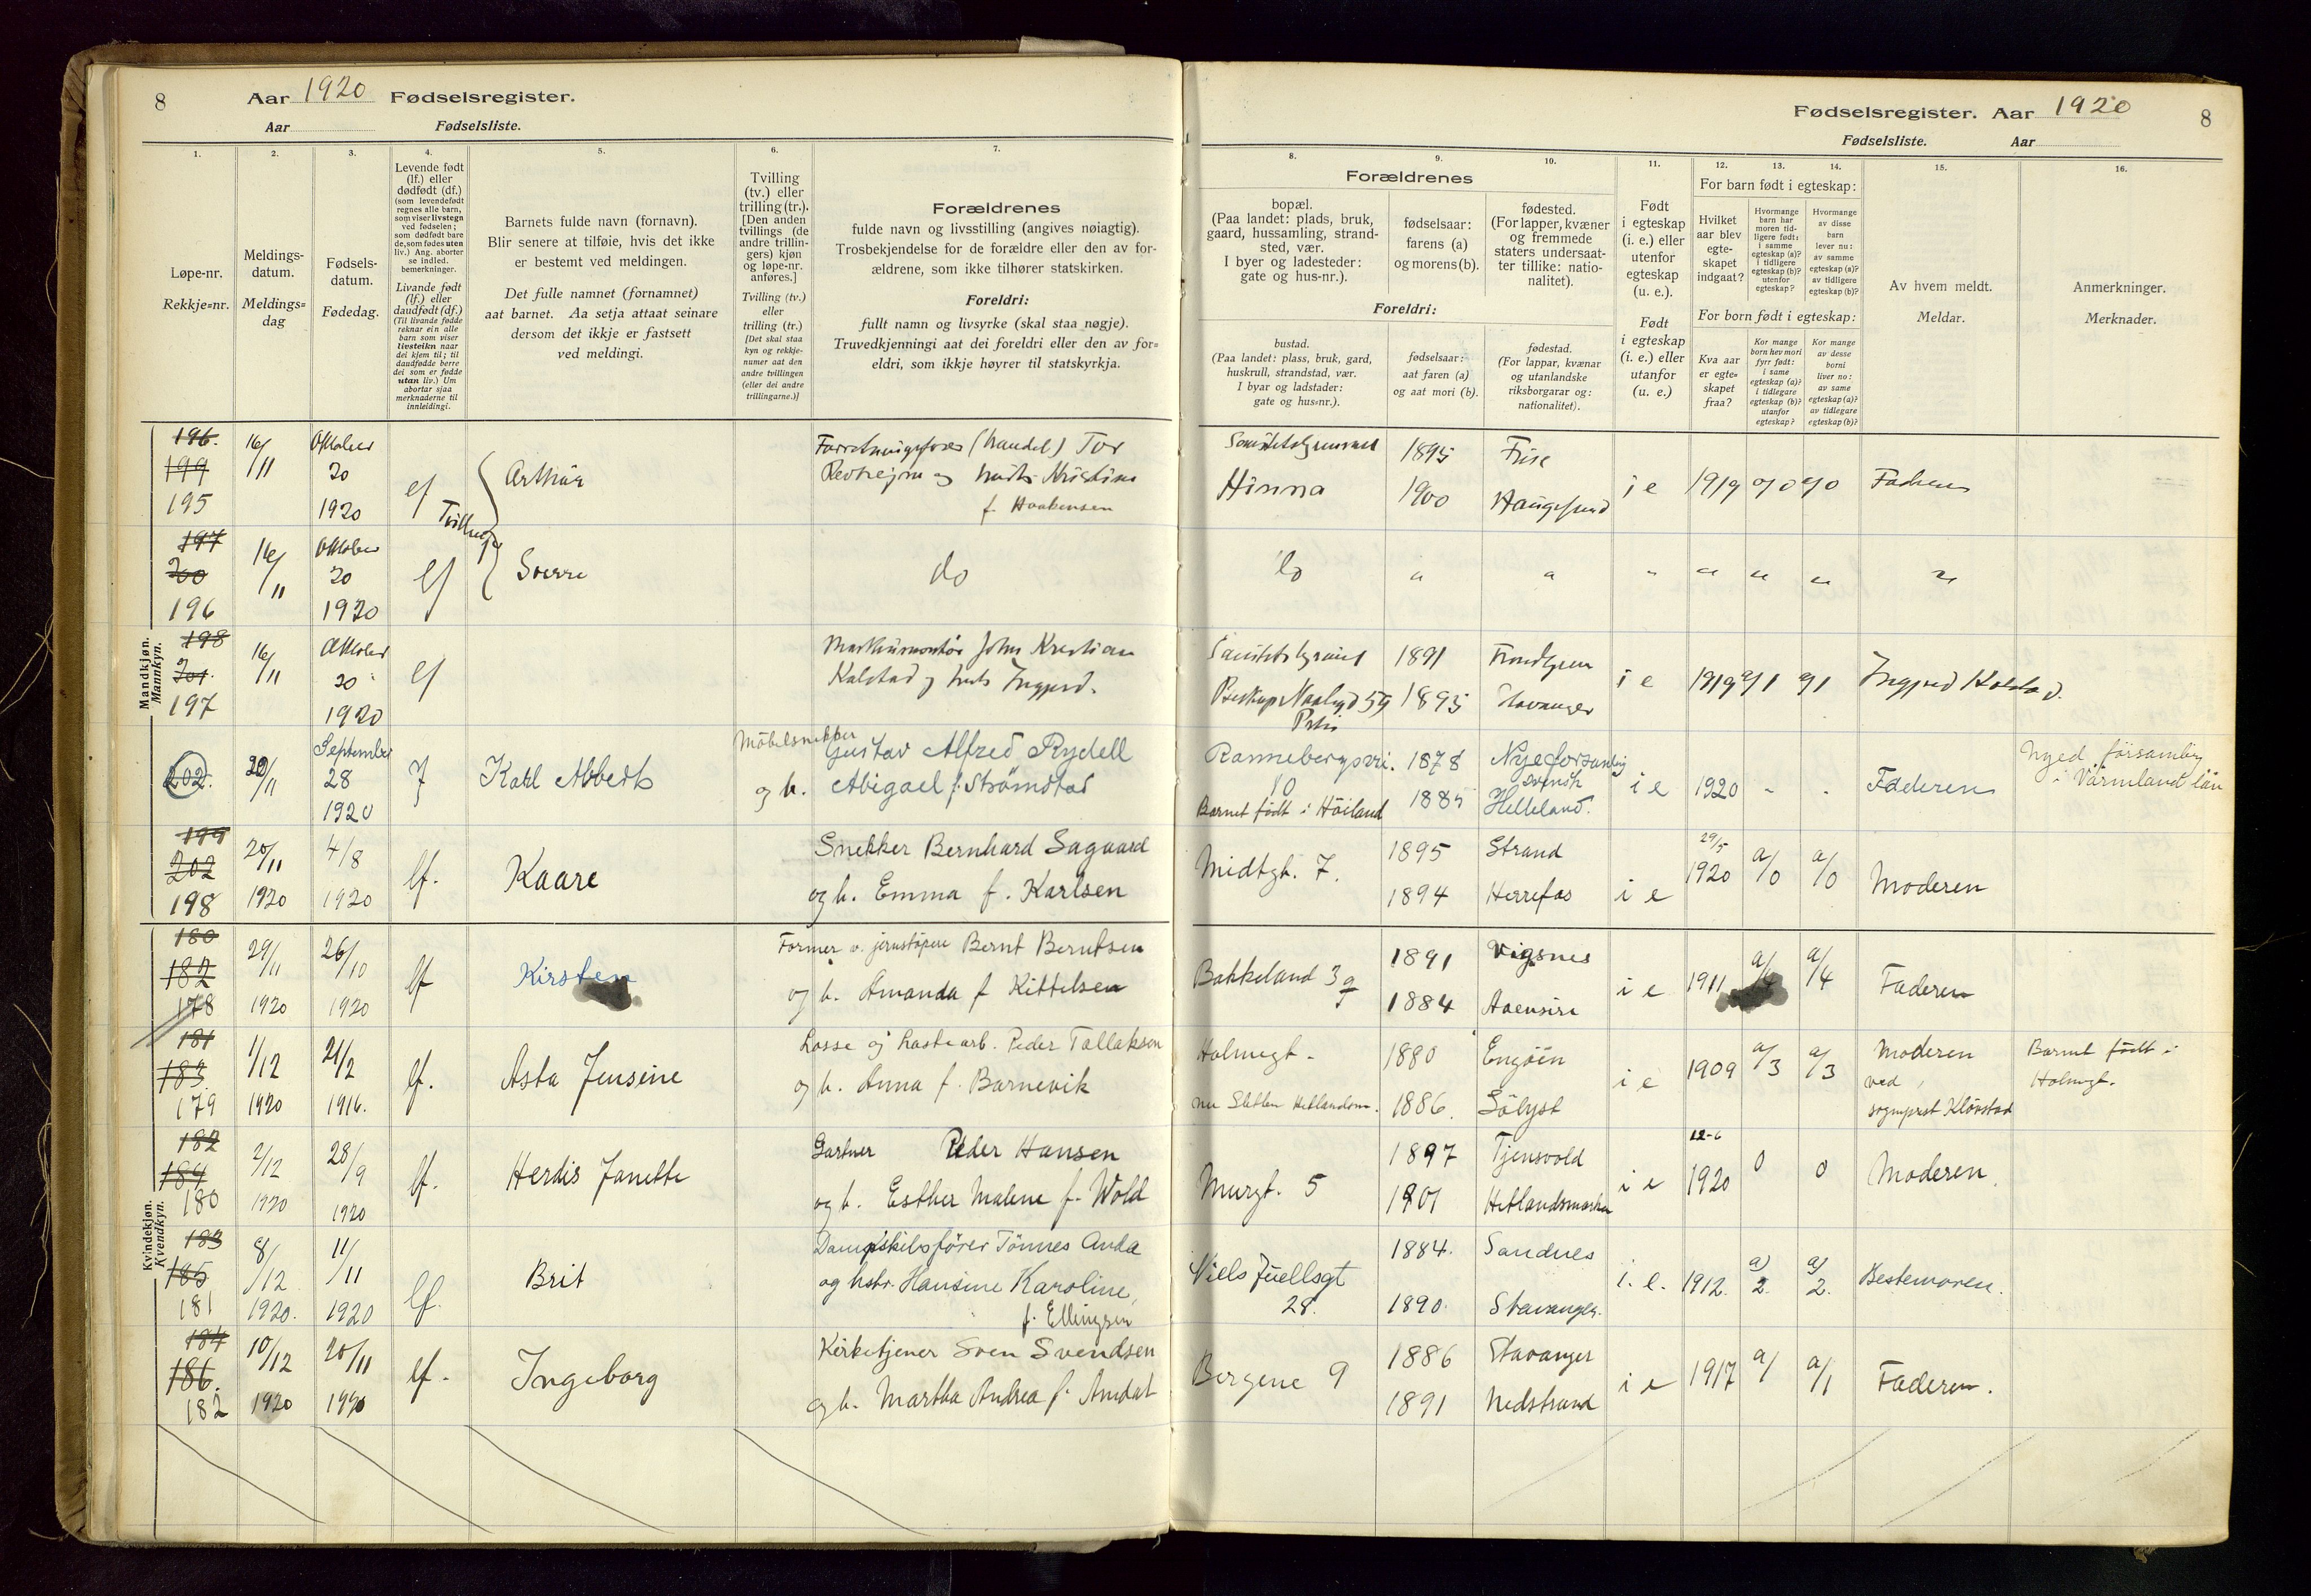 8
Aar 1920 Fødselsregister.
Aar Fødselsliste.
1.
2.
3.
4.
5.
6.
7.
Løpe-nr.
Rekkje=nr.
Meldings-
datum.
Meldings=
dag
Fødsels-
datum.
Fødedag.
Levende født
(lf.) eller
dødfødt (df.)
(som levendefødt
regnes alle barn,
som viser livstegn
ved fødselen;
som dødfødt bare
de, som fødes uten
liv.) Ang. aborter
se indled.
bemerkninger.
Livande født
(lf.) eller
daudfødt (df.)
(Til livande fødde
reknar ein alle
barn som viser
livsteikn naar
dei kjem til; til
daudfødde berre
dei som er fødde
utan liv.) Um
abortar sjaa
merknaderne til
innleidingi.
Barnets fulde navn (fornavn).
Blir senere at tilføie, hvis det ikke
er bestemt ved meldingen.
Det fulle namnet (fornamnet)
aat barnet. Aa setja attaat seinare
dersom det ikkje er fastsett
ved meldingi.
Tvilling
(tv.) eller
trilling (tr.).
[Den anden
tvillings (de
andre trillin-
gers) kjøn
og løpe-nr.
anføres.]
Tvilling (tv.)
eller
trilling (tr.)
[Det skal staa
kyn og rekkje-
numer aat den
andre tvillingen
(eller dei andre
trillingarne.)]
Forældrenes
fulde navn og livsstilling (angives nøiagtig).
Trosbekjendelse for de forældre eller den av for-
ældrene, som ikke tilhører statskirken.
Foreldri:
fullt namn og livsyrke (skal staa nøgje).
Truvedkjenningi aat dei foreldri eller den av for=
eldri, som ikkje høyrer til statskyrkja.
Mandkjøn.
Mannkyn.
196.
199
195
16/11
Oktober
20
1920
Tvillinger
Arthur
Kristine
f. Haakensen
197
200
196
16/11
Oktober
20
1920
lf
Sverre
do
198
201.
197
16/11
Oktober
20
1920
lf
John Kristian
Kalstad
202.
20/11
September
28
1920
Karl Abbeth
Möbelsnekker
Gustav Alfred Rydell
og h. Abigael f. Strömstad
199
202
198
20/11
1920
4/8
1920
lf.
Kaare
Snekker Bernhard Sagaard
og h. Emma f. Karlsen
Kvindekjøn.
Kvendkyn.
180
182
178
29/11
1920
26/10
1920
lf
Kirsten
Former v. jernstøperi Bernt Berntsen
og h. Amanda f Kittelsen
181
183
179
1/12
1920
21/2
1916.
lf.
Asta Jensine
Losse og lastearb. Peder Tallaksen
og h. Anna f. Barnevik
182
184
180
2/12
1920
28/9
1920
lf.
Herdis Janette
Gartner Peder Hansen
og h. Esther Malene f. Wold
183
185
181
8/12
1920.
11/11
1920
lf.
Brit
Dampskibsfører Tønnes Anda
og hstr. Hansine Karoline,
f. Ellingsen
184
186.
182
10/12
1920
20/11
1920
lf.
Ingeborg
Kirketjener Sven Svendsen
og h. Martha Andrea f. Amdal
Fødselsregister. Aar 1920
8
Fødselsliste. Aar
8.
9.
10.
11.
12.
13.
14.
15.
16.
Forældrenes
bopæl.
(Paa landet: plads, bruk,
gaard, hussamling, strand-
sted, vær.
I byer og ladesteder:
gate og hus-nr.).
fødselsaar:
farens (a)
og morens (b).
fødested.
(For lapper, kvæner
og fremmede
staters undersaat-
ter tillike: natio-
nalitet).
Foreldri:
bustad.
(Paa landet: plass, bruk, gard,
huskrull, strandstad, vær.
I byar og ladstader:
gate og hus=nr.).
fødselsaar:
aat faren (a)
og aat mori (b).
fødestad.
(For lappar, kvænar
og utanlandske
riksborgarar og:
nationalitet).
Født
i egteskap
(i. e.) eller
utenfor
egteskap
(u. e.).
Født
i egteskap
(i. e.) eller
utanfor
(u. e.)
For barn født i egteskap:
Hvilket
aar blev
egte-
skapet
indgaat?
Hvormange
barn har
moren tid-
ligere født:
i samme
egteskap (a)?
i tidligere
egteskap (b)?
utenfor
egteskap?
Hvormange
av disse
barn
lever nu:
av samme
egteskap (a)?
av tidligere
egteskap (b)?
For born født i egteskap:
Kva aar
er egte=
skapet
fraa?
Kor mange
born hev mori
fyrr født:
i same
egteskap (a)?
i tidlegare
egteskap (b)?
utanfor
egteskap?
Kor mange
av desse
borni
liver no:
av same
egteskap (a)?
av tidlegare
egteskap (b)?
Av hvem meldt.
Meldar.
Anmerkninger.
Merknader.
Hinna
1895
1900
Haugesund
i e
1919
a/0
a/0
Faderen
do
1891
1895
Stavanger
i e
1919
a/1
a/1
Ranebergsvei.
10
Barnet født i Höiland
1878
1885
svensk
Helleland.
i e
1920
Faderen
Nyed församling
i Värmland län
Midtgt. 7.
1895
1894
Strand
i e
29/5
1920
a/0
a/0
Moderen
Bakkeland 3
1891
1884
Vigsnes
i e
1911
a/4
Faderen
Holmegt.
1880
1886.
Engöen
Sölyst
i e
1909
a/3
a/3
Moderen
ved
sogneprest Klövstad
Barnet født i
Holmegt.
Murgt. 5
1897
1901
Tjensvold
Hetlandsmarken
i e
12-6
1920
0
0
Moderen
Niels Juellsgt
28.
1884.
1890.
Sandnes
Stavanger.
i. e.
1912.
a) 2.
a) 2.
Bestemoren.
Bergene 9
1886
1891
Stavanger
Nedstrand
i e
1917
a/
a/1
Faderen.